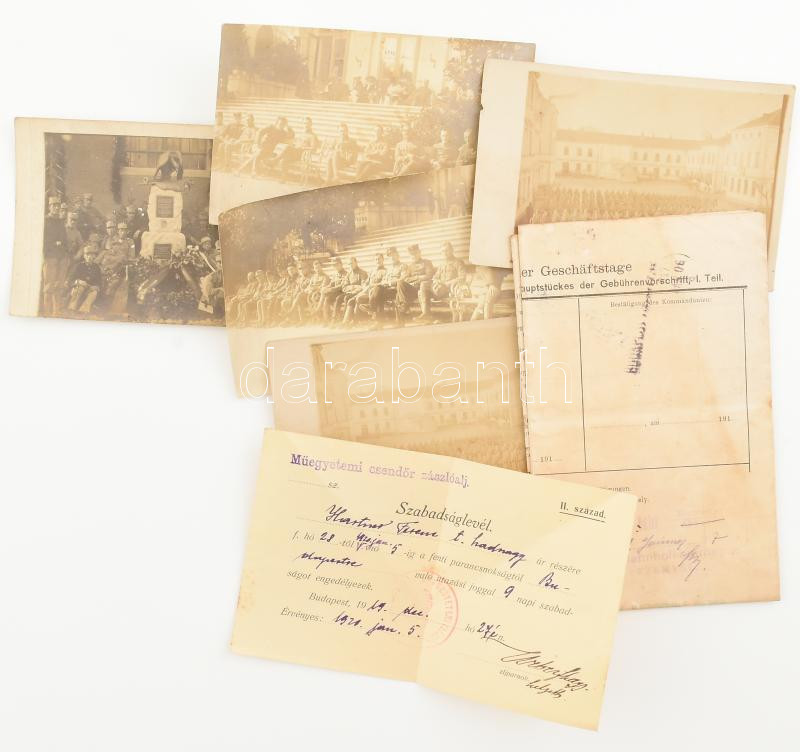 er Geschäftstage
auptstückes der Gebührenvorschrift, I. Teil.
Bestätigung des Kommandanten:
, am 191
191
darabanth
Műegyetemi csendőr zászlóalj.
sz. II. század.
Szabadságlevél.
Hartner Ferenc t. hadnagy úr részére
f. hó 28 -tól jan. 5 -ig a fenti parancsnokságtól Bu-
dapestre való utazási joggal 9 napi szabad-
ságot engedélyezek.
Budapest, 1919. dec. hó 27 én
Érvényes: 1920. jan. 5.